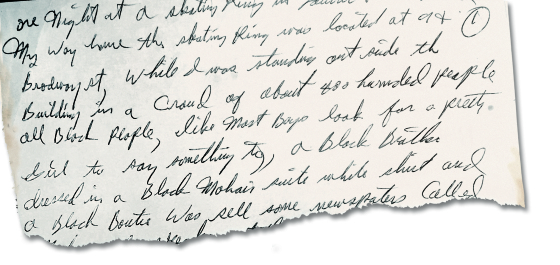 one Night at a skating Ring in
My way home the skating Ring was located at 94 ①
Brodway st, While I was standing out side th
Building in a Crowd of about 400 hunded people
all Black People, like Most Boys look for a pretty
Girl to say something to, a Black Brother
dressed in a Black Mohair suite white shirt and
a Black Boutie Was sell some newspaters Called